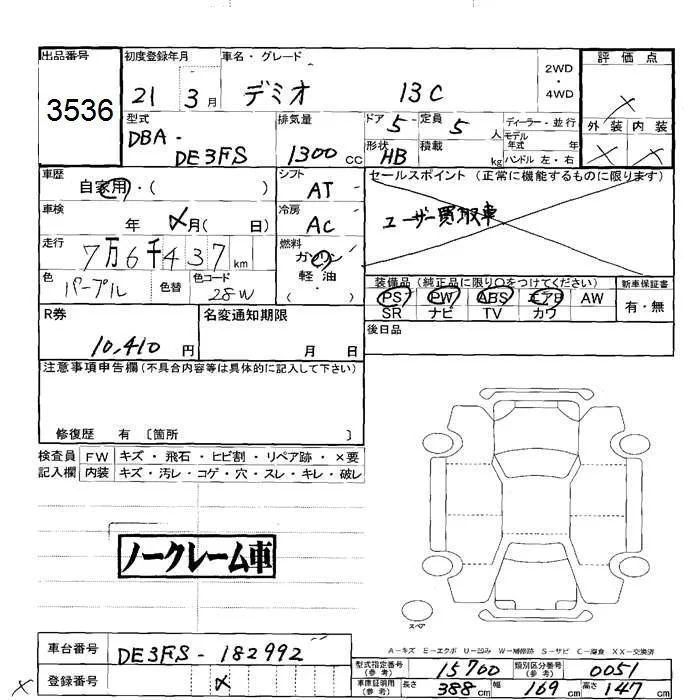 出品番号 初度登録年月 車名・グレード 2WD ・ 4WD 評価点
3536 21 3月 デミオ 13C ×
型式 DBA-DE3FS 排気量 1300cc ドア 5 定員 5人 ディーラー・並行 外装 内装
形状 HB 積載 kg モデル年式 年 ハンドル 左・右 × ×
車歴 自家用・( ) シフト AT セールスポイント (正常に機能するものに限ります)
車検 年 〆月( 日) 冷房 AC ユーザー買取車
走行 7万6千437km 燃料 ガソリン
軽・油 ( )
色 パープル 色替 色コード 28W
装備品 (純正品に限り○をつけてください) 新車保証書
PS PW ABS エアB AW 有・無
SR ナビ TV カワ
R券 10,410円 名変通知期限 月 日 後日品
注意事項申告欄(不具合内容等は具体的に記入して下さい)
修復歴 有 〔箇所 〕
検査員 FW キズ・飛石・ヒビ割・リペア跡・×要
記入欄 内装 キズ・汚レ・コゲ・穴・スレ・キレ・破レ
ノークレーム車
スペア
A−キズ E−エクボ U−凹み W−補修跡 S−サビ C−腐食 XX−交換済
車台番号 DE3FS-182992
型式指定番号(参考) 15700 類別区分番号(参考) 0051
× 登録番号 〆
車庫証明用(参考) 長さ 388cm 幅 169cm 高さ 147cm